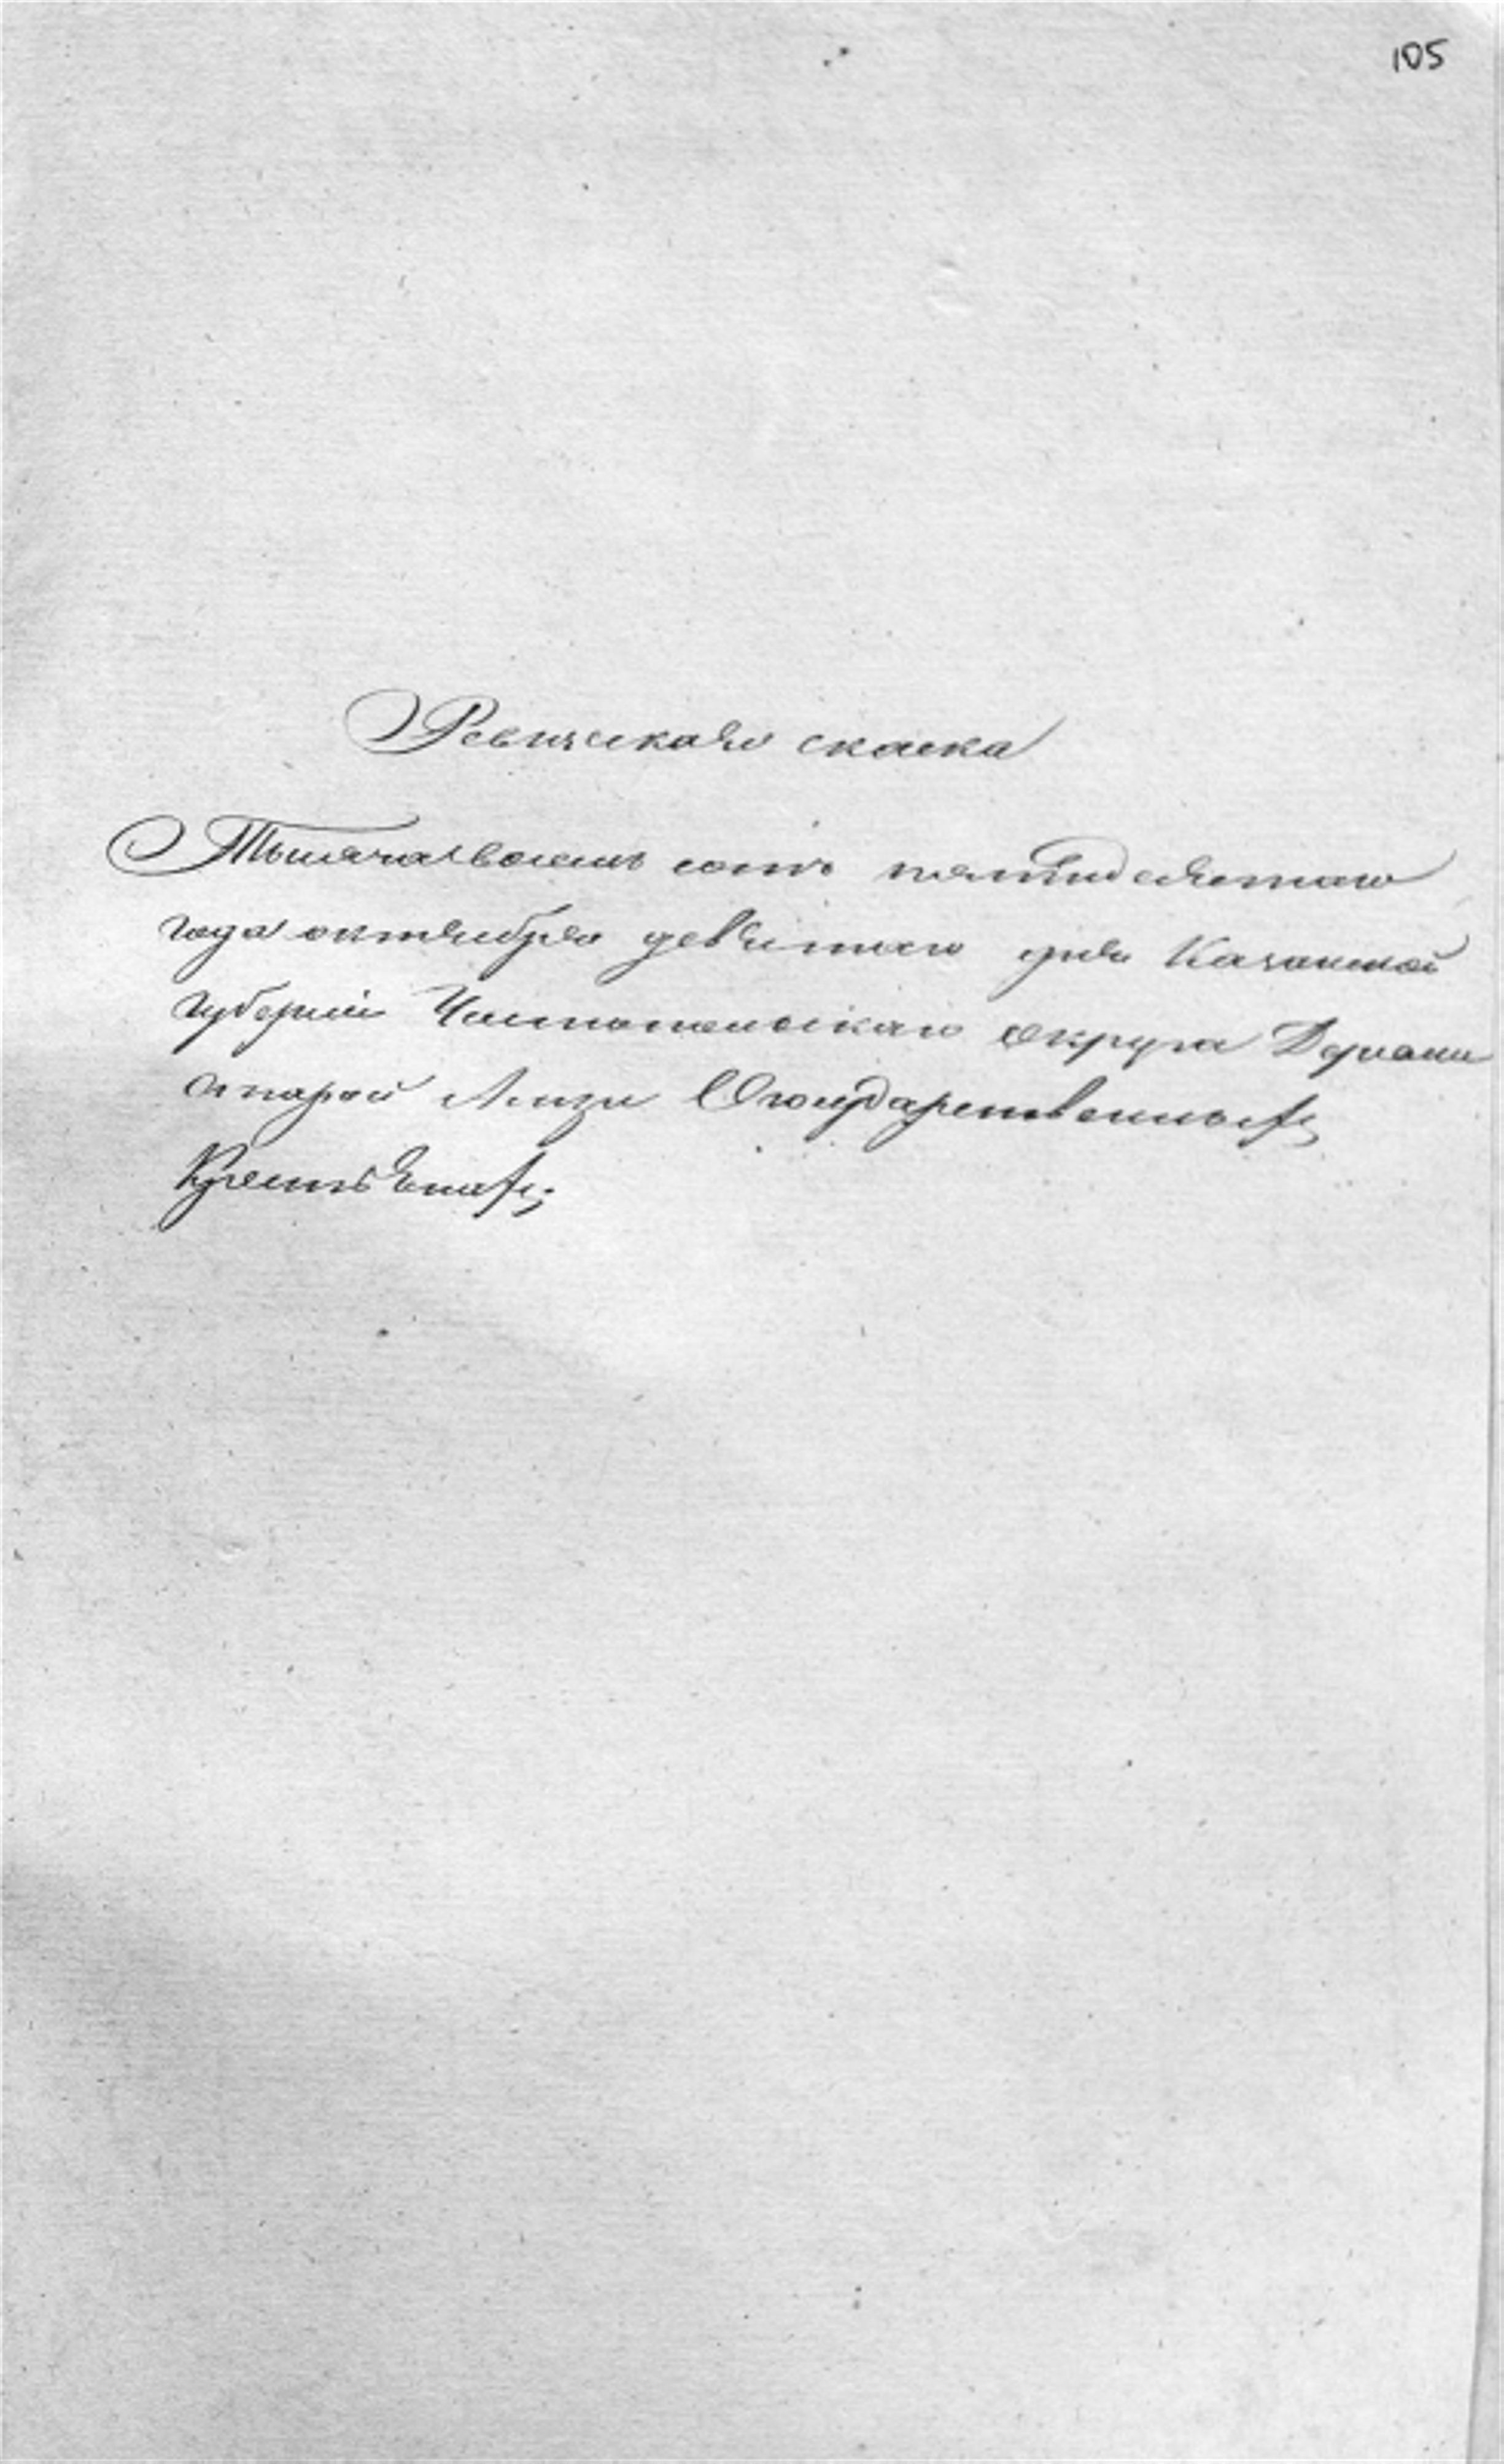 105
Ревизская скаска
Тысяча восемь сотъ пятидесятаго
года октября девятаго дня Казанской
губернiи Чистопольскаго округа Деревни
старой Амзи Государственныхъ
Крестьянахъ;